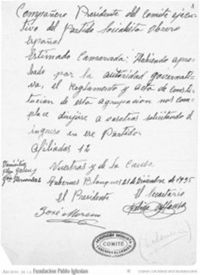 Compañero Presidente del Comité ejecu-
tivo del Partido Socialista Obrero
Español
Estimado Camarada: Habiendo apro-
bado por la autoridad governati-
va, el Reglamento y acta de consti-
tucion de esta agrupacion nos com-
place dirijirse a vosotros solicitando el
ingreso en ese Partido.
Afiliados 12
Vuestros y de la Causa
Tabernes Blanques 21 diciembre 1935
El Presidente El Secretario
José Moreno
COMITÉ
Fundación Pablo Iglesias